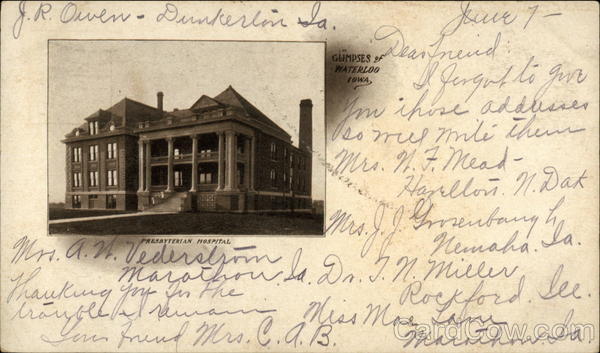 J. R. Owen - Dunkerton Ia.
June 7 -
GLIMPSES OF
WATERLOO
IOWA.
Dear friend
I forgot to give
you those addresses
so will write them
Mrs. N. F. Mead -
Hazelton. N. Dak
Mrs. J. J. Grosenbaugh
Nemaha. Ia.
PRESBYTERIAN HOSPITAL
Mrs. A. N. Vederström
Marathon Ia.
Dr. T. N. Miller
Rockford. Ill.
Miss Mae Lane
Marathon. Ia.
Thanking you for the
trouble I remain
Your friend Mrs. C. A. B.
CardCow.com